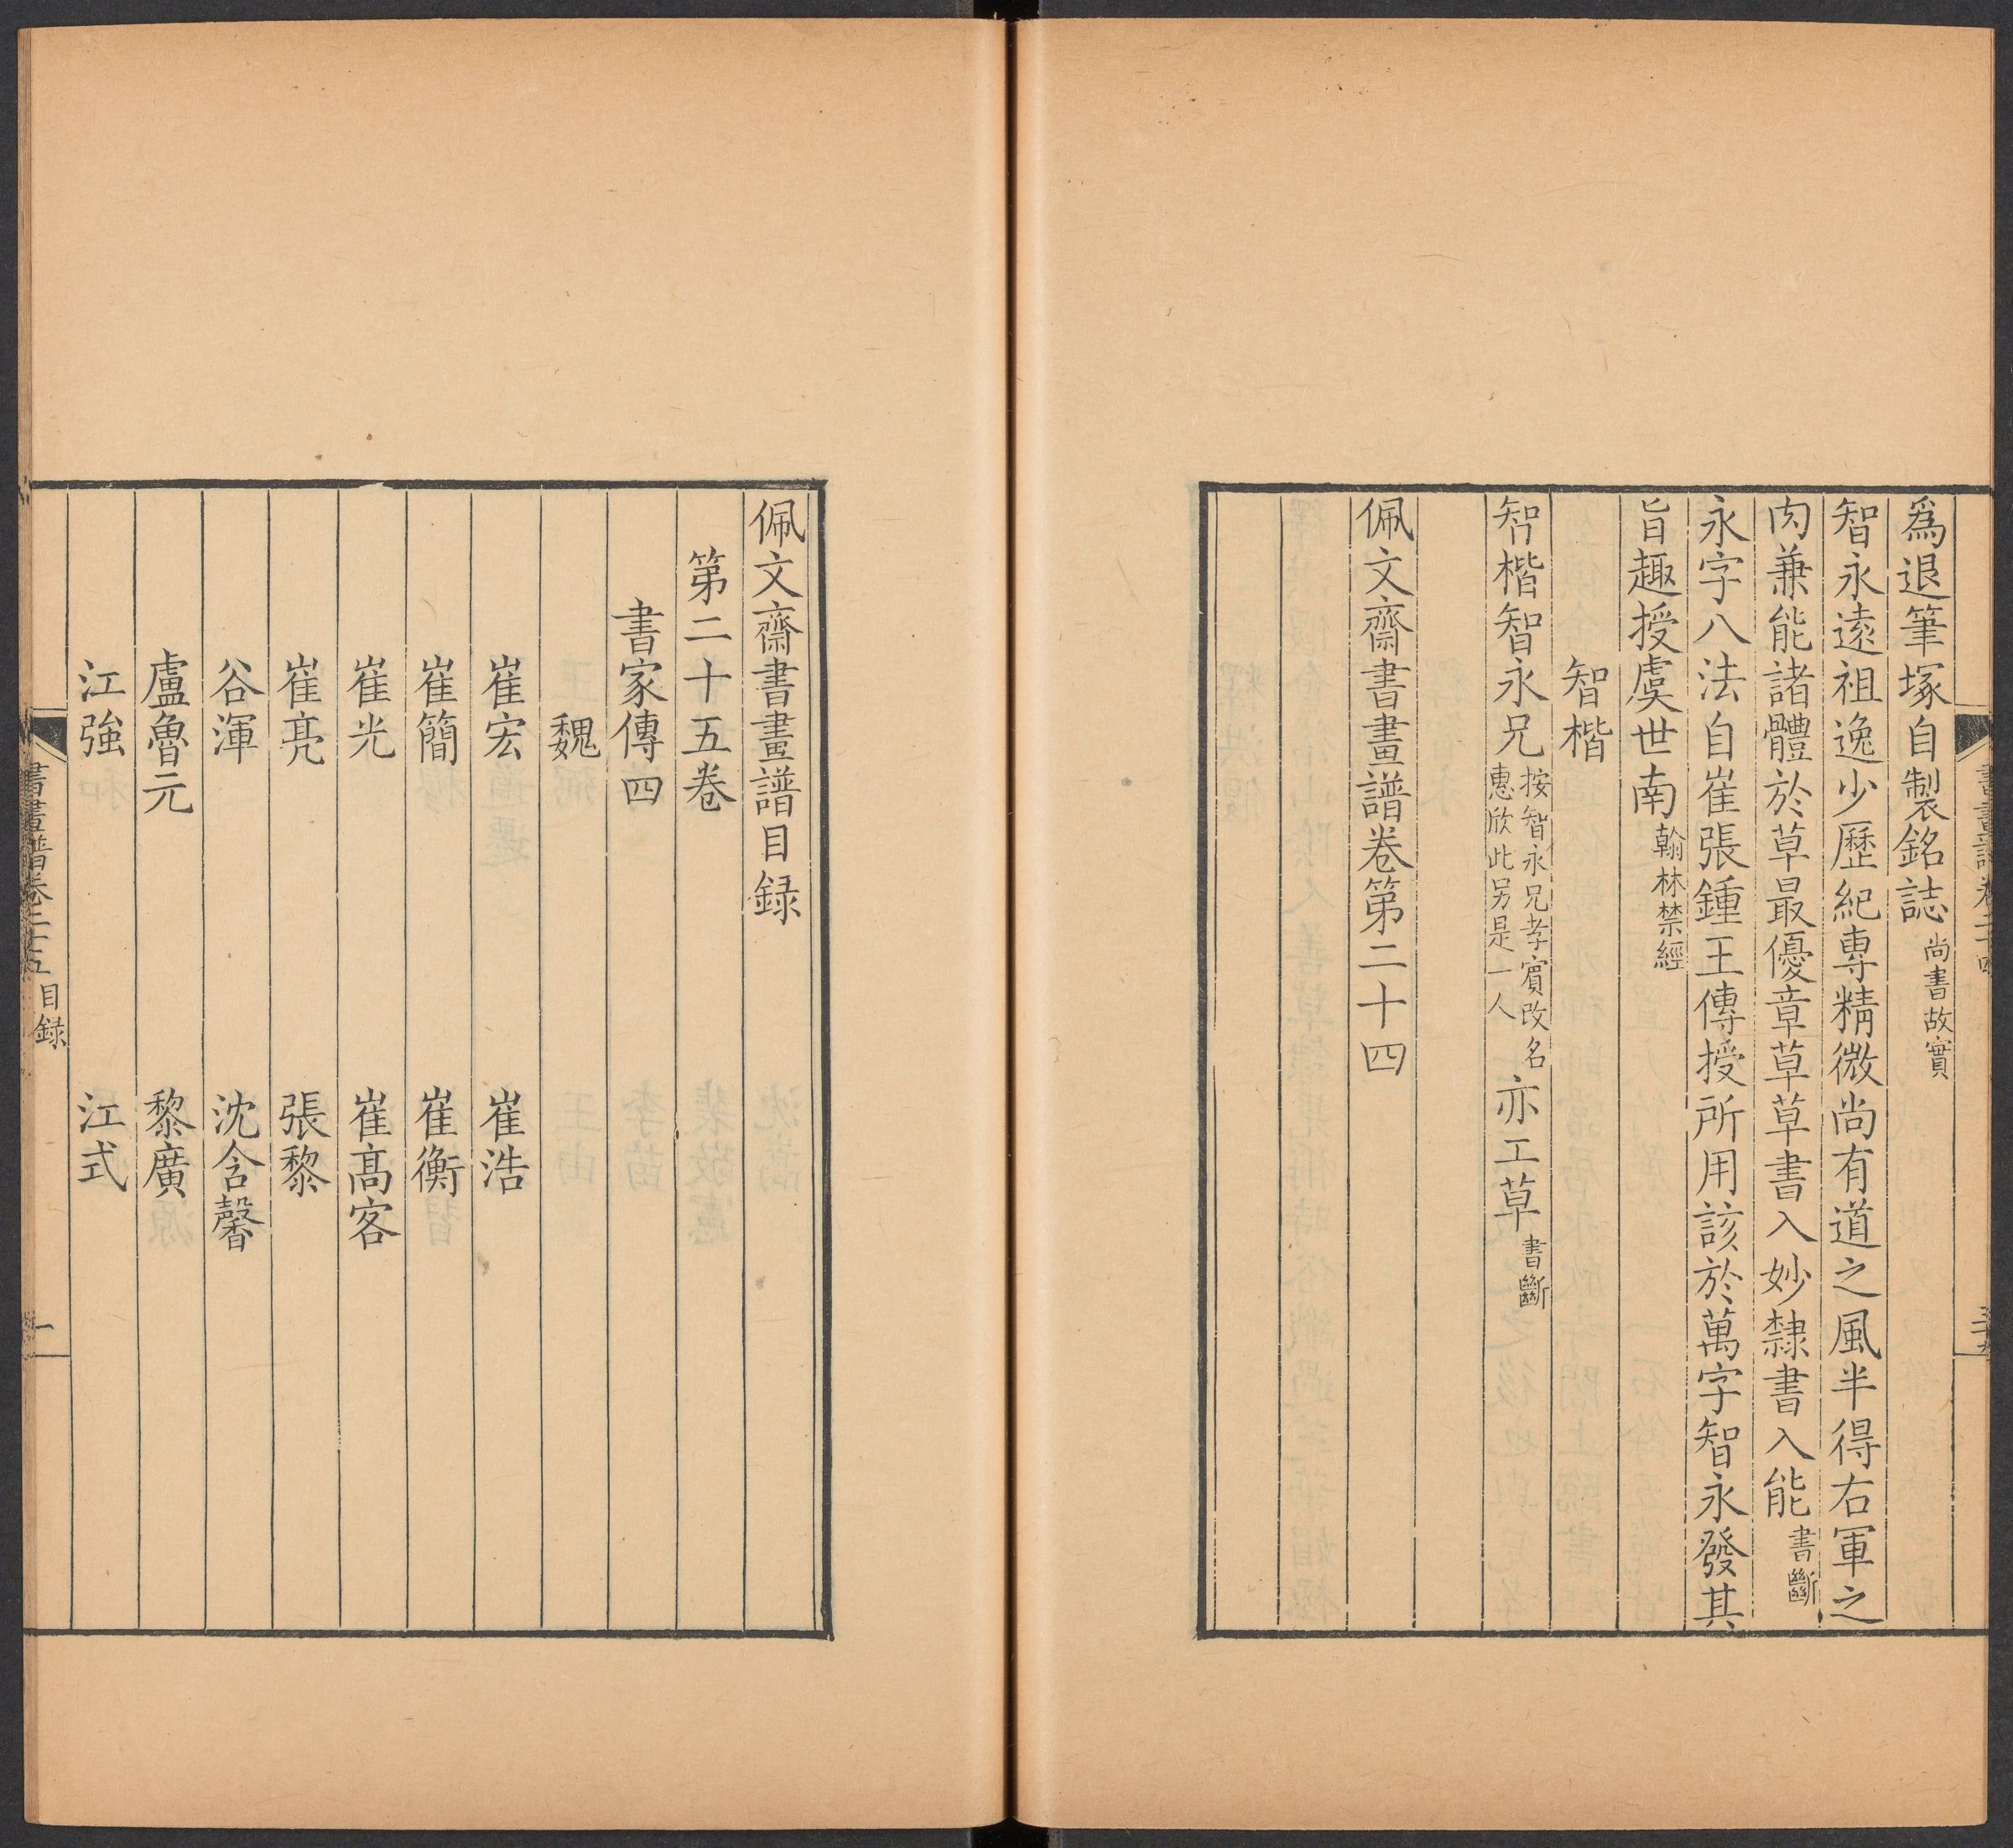 為退筆塚自製銘誌尚書故實
智永遠祖逸少歷紀專精微尚有道之風半得右軍之
肉兼能諸體於草最優章草草書入妙隸書入能書斷
永字八法自崔張鍾王傳授所用該於萬字智永發其
旨趣授虞世南翰林禁經
智楷
智楷智永兄按智永兄孝賔改名惠欣此另是一人亦工草書斷
佩文齋書畫譜卷第二十四
佩文齋書畫譜目録
第二十五卷
書家傳四
魏
崔宏 崔浩
崔簡 崔衡
崔光 崔髙客
崔亮 張黎
谷渾 沈含馨
盧魯元 黎廣
江強 江式
書畫譜卷二十五 目録 一